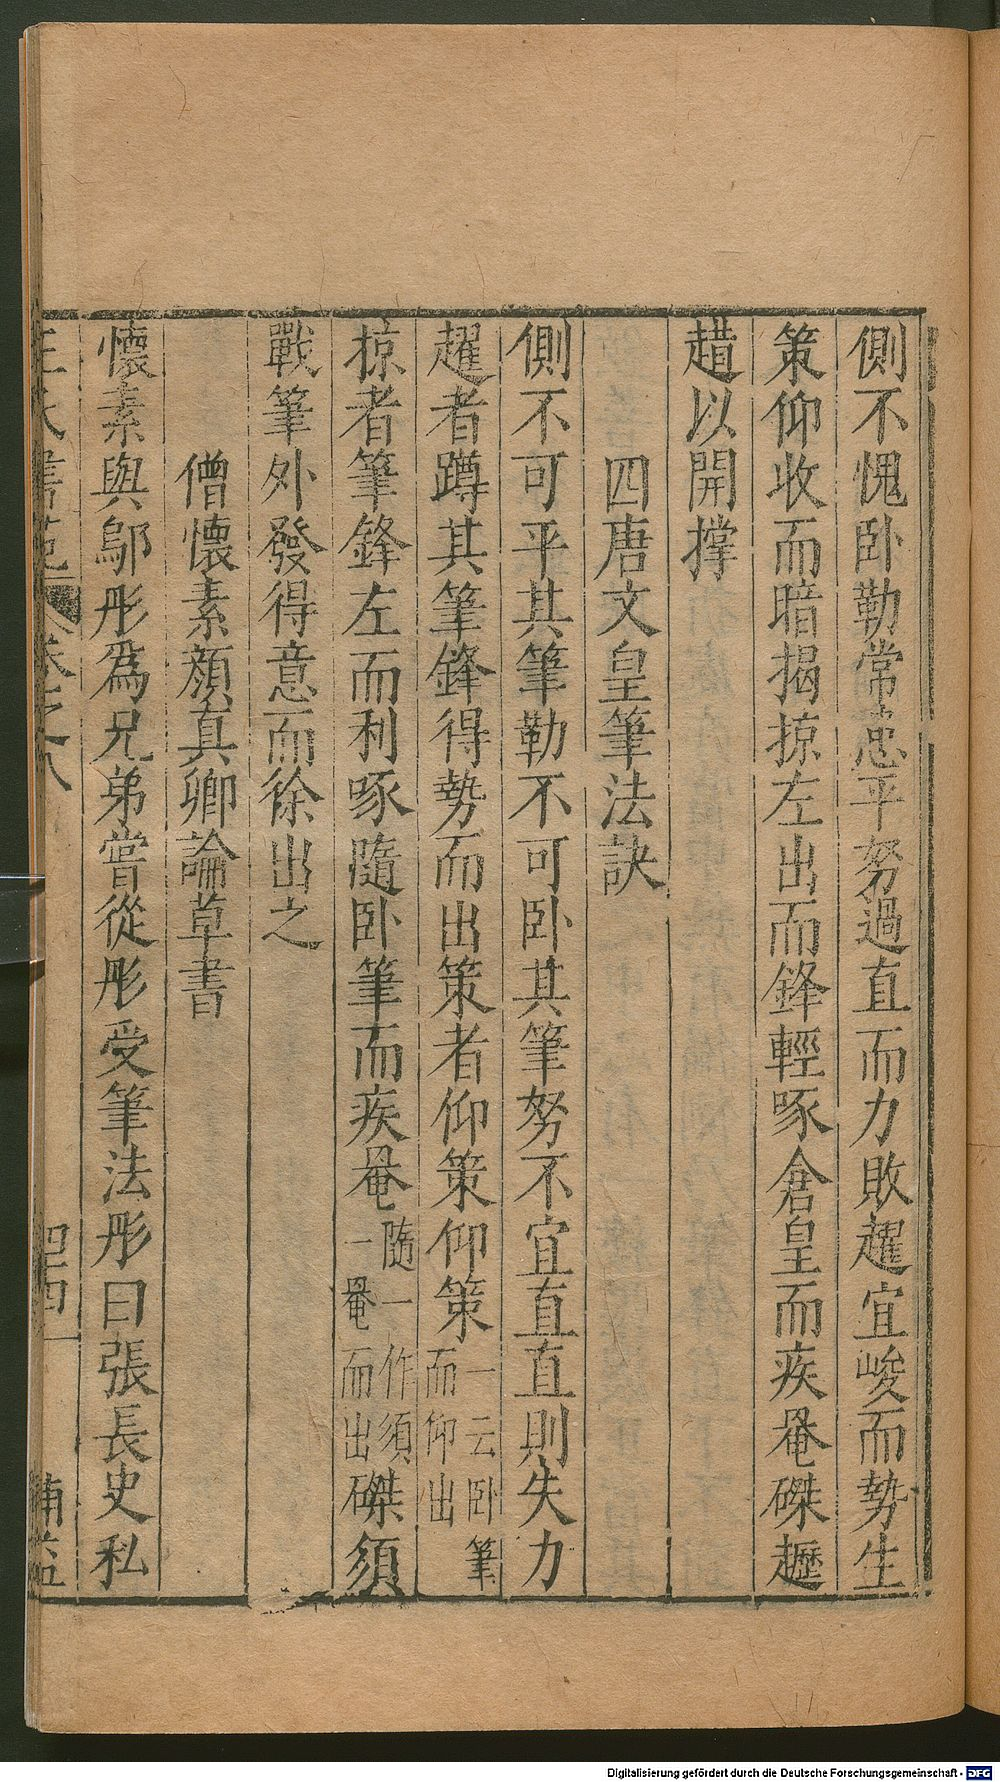 側不愧卧勒常患平努過直而力敗趯宜峻而勢生
策仰收而暗揭掠左出而鋒輕啄倉皇而疾罨磔䟐
趞以開撑
四唐文皇筆法訣
側不可平其筆勒不可卧其筆努不宜直直則失力
趯者蹲其筆鋒得勢而出策者仰策仰策一云卧筆而仰出
掠者筆鋒左而利啄隨卧筆而疾罨隨一作須一罨而出磔須
戰筆外發得意而徐出之
僧懷素顏真卿論草書
懷素與鄔彤爲兄弟嘗從彤受筆法彤曰張長史私
王氏書苑 卷之八 四四 補益
Digitalisierung gefördert durch die Deutsche Forschungsgemeinschaft - DFG